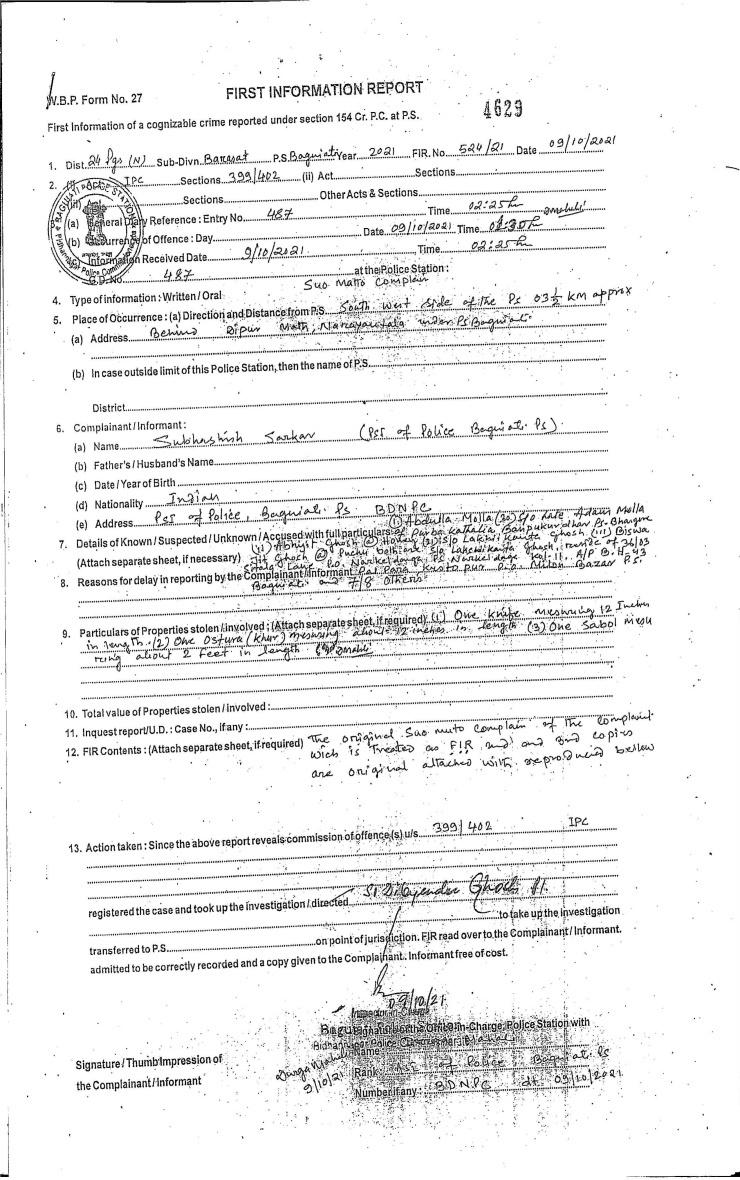 W.B.P. Form No. 27
FIRST INFORMATION REPORT
4629
First Information of a cognizable crime reported under section 154 Cr. P.C. at P.S.
1. Dist. 24 Pgs (N) Sub-Divn. Barasat P.S. Baguiati Year 2021 FIR. No. 524/21 Date 09/10/2021
2. IPC Sections 399/402 (ii) Act Sections
(iii) Sections Other Acts & Sections
(a) General Diary Reference : Entry No. 487 Time 02:25 h
(b) Occurrence of Offence : Day Date 09/10/2021 Time
Information Received Date 9/10/2021 Time 02:25 h
G.D. No. 487 at the Police Station :
4. Type of information : Written / Oral Suo Matto Complain
5. Place of Occurrence : (a) Direction and Distance from P.S. South West Side of the Ps 03½ KM approx
(a) Address Behind Math, Narayantala under Ps Baguiati
(b) In case outside limit of this Police Station, then the name of P.S.
District
6. Complainant / Informant :
(a) Name Subhashish Sarkar ( of Police Baguiati Ps)
(b) Father's / Husband's Name
(c) Date / Year of Birth
(d) Nationality Indian
(e) Address of Police, Baguiati Ps BDNPC
7. Details of Known / Suspected / Unknown / Accused with full particulars (i) Abdulla Molla (30) S/o Late Adam Molla
of Purba Kathalia Banpukurdhar Ps.
(Attach separate sheet, if necessary) (ii) Abhijit Ghosh @ S/o Lakshi Kanta Ghosh (iii) Biswa
jit Ghosh @ Puchu S/o Lakshikanta Ghosh, of 36/03
Lane P.o. Narkeldanga Ps Narkeldanga Kol-11, A/P B.H-43
8. Reasons for delay in reporting by the Complainant / Informant Pal Para P.o. Milon Bazar P.S.
Baguiati and 7/8 others
9. Particulars of Properties stolen / involved : (Attach separate sheet, if required) (1) One Knife mesuring 12 Inches
in length (2) One Ostura (Khur) mesuring about 12 inches in length (3) One Sabol mesu
ring about 2 Feet in length
10. Total value of Properties stolen / involved :
11. Inquest report / U.D. : Case No., if any :
12. FIR Contents : (Attach separate sheet, if required) The original Suo muto complain of the complaint
wich is Treated as FIR and copies
are original attached with reproduced bellow
13. Action taken : Since the above report reveals commission of offence(s) u/s 399/402 IPC
registered the case and took up the investigation / directed S.I. Ghosh
to take up the investigation
transferred to P.S. on point of jurisdiction. FIR read over to the Complainant / Informant.
admitted to be correctly recorded and a copy given to the Complainant. Informant free of cost.
09/10/21
Inspector-in-Charge
Signature of the Officer-in-Charge, Police Station with
Name
Signature / Thumb Impression of
the Complainant / Informant
9/10/21
Rank of Police Baguiati Ps
Number if any : BDNPC dt. 09/10/2021